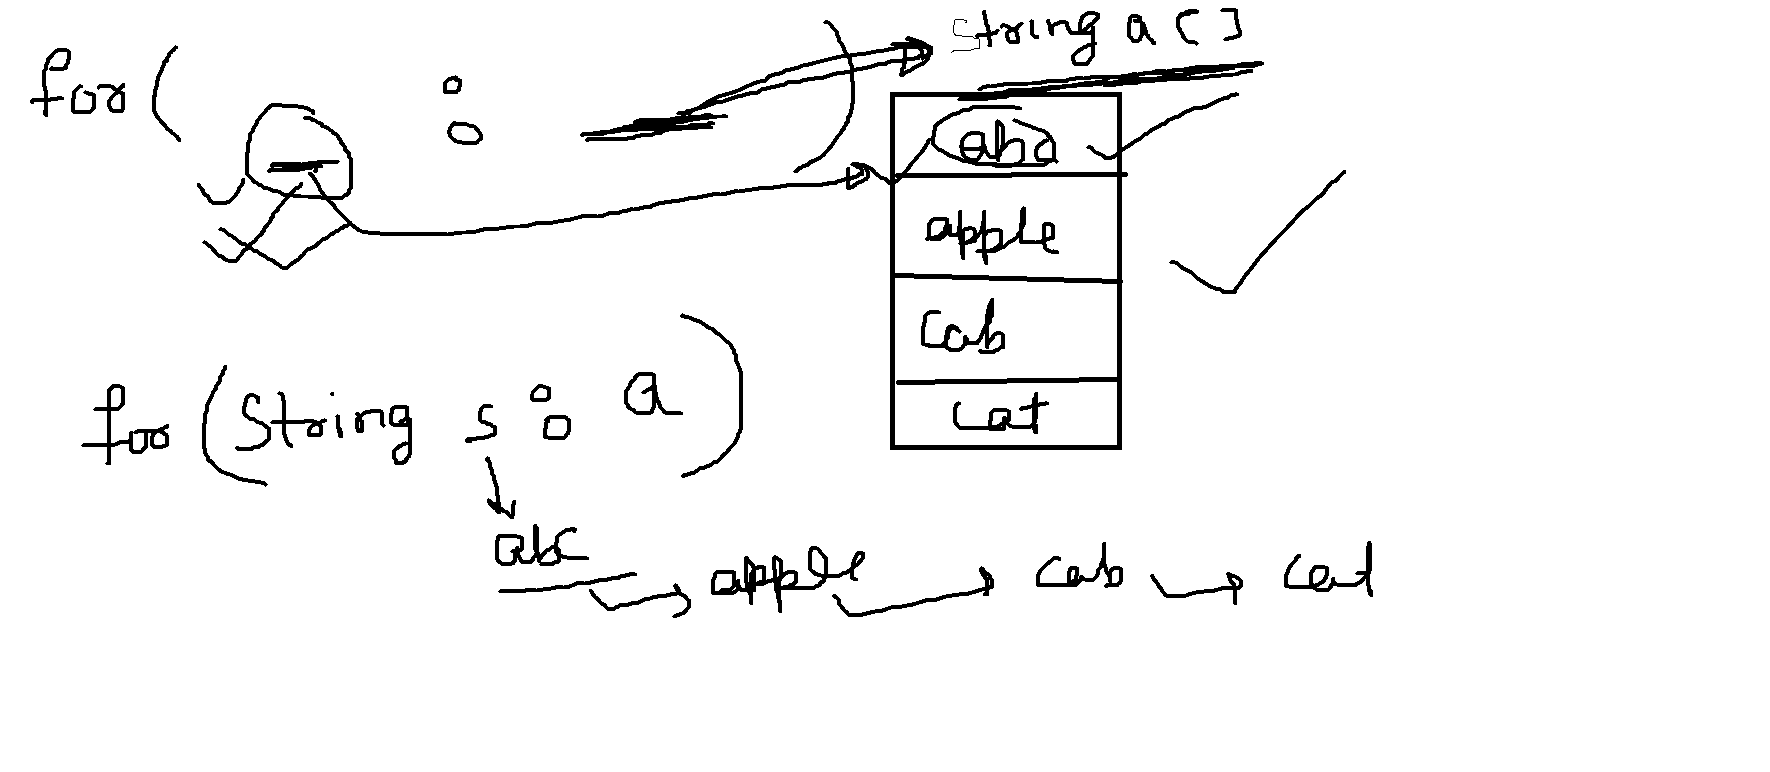 String a []
for( : )
abc
apple
cab
cat
for (String s : a)
abc apple cab cat